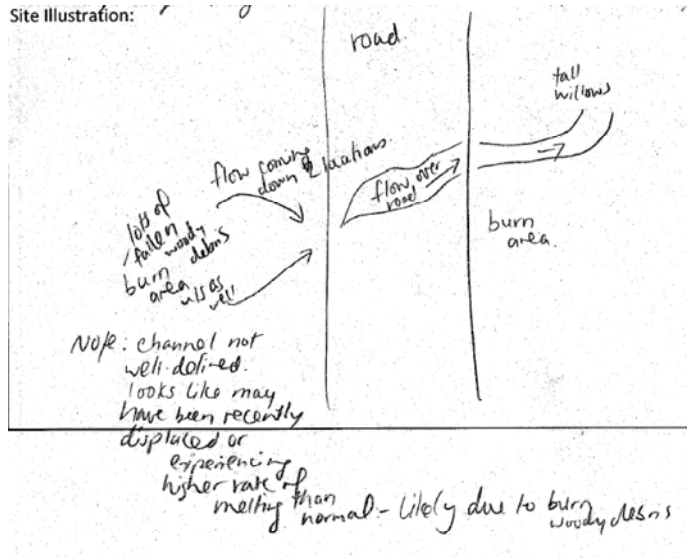 Site Illustration:
road.
tall
willows
flow coming
down 2 locations.
flow over
road
lots of
fallen
woody
debris
burn
area
u/s as
well
burn
area.
Note: channel not
well-defined.
looks like may
have been recently
displaced or
experiencing
higher rate of
melting than
normal - likely due to burn
woody debris